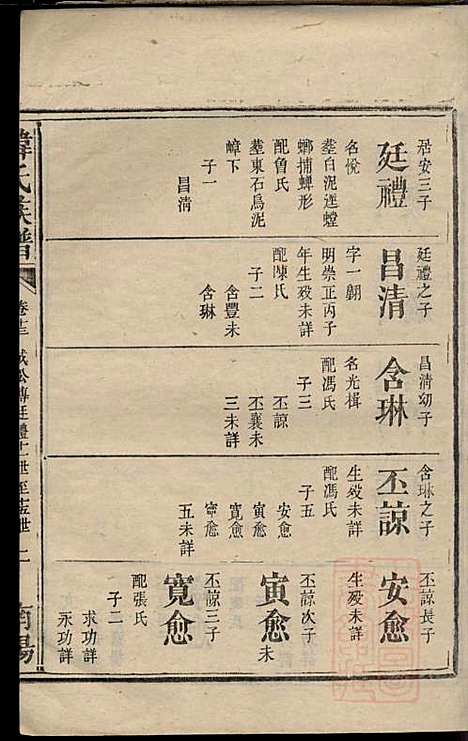 居安三子
廷禮
名悅
塟白泥逕螳
螂捕蟬形
配魯氏
塟東石烏泥
嶂下
子一
昌清
廷禮之子
昌清
字一鵬
明崇正丙子
年生殁未詳
配陳氏
子二
含豐未
含琳
昌清幼子
含琳
名光楫
配馮氏
子三
丕諒
丕襄未
三未詳
含琳之子
丕諒
生殁未詳
配馮氏
子五
安愈
寅愈
寬愈
寧愈
五未詳
丕諒長子
安愈
生殁未詳
丕諒次子
寅愈未
丕諒三子
寬愈
配張氏
子二
求功詳
永功詳
韓氏族譜
卷
廷禮十一世至
二
南陽